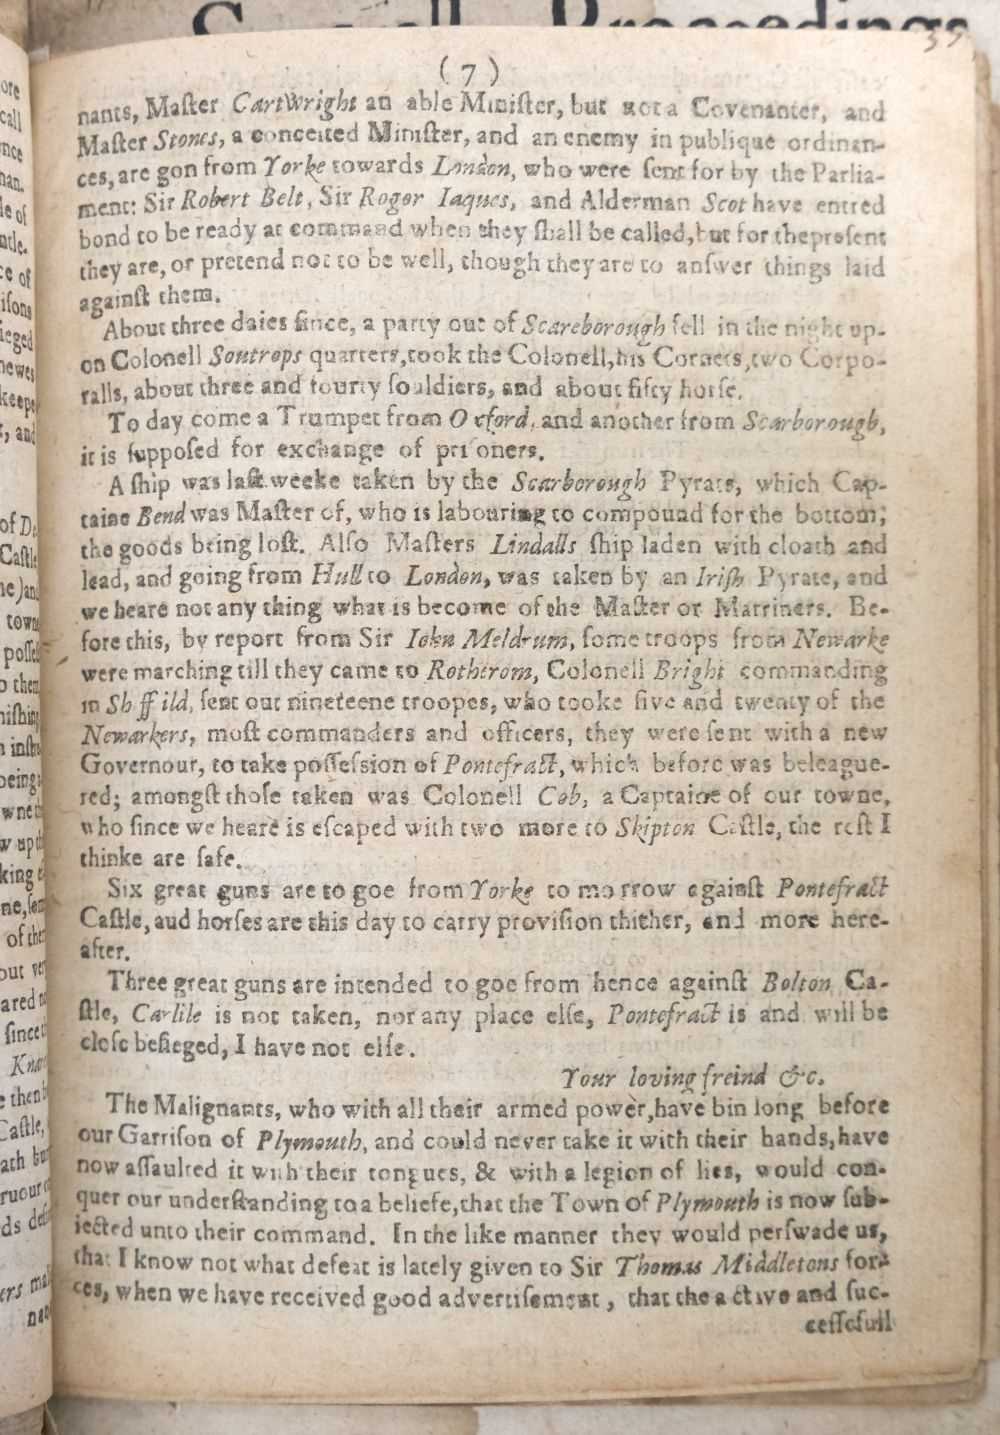 Proceedings
35
( 7 )
nants, Maſter CartWright an able Miniſter, but not a Covenanter, and
Maſter Stones, a conceited Miniſter, and an enemy in publique ordinan-
ces, are gon from Yorke towards London, who were ſent for by the Parlia-
ment: Sir Robert Belt, Sir Roger Iaques, and Alderman Scot have entred
bond to be ready at command when they ſhall be called, but for the preſent
they are, or pretend not to be well, though they are to anſwer things laid
againſt them.
About three daies ſince, a party out of Scareborough fell in the night up-
on Colonell Soutrops quarters, took the Colonell, his Cornets, two Corpo-
ralls, about three and fourty ſouldiers, and about fifty horſe.
To day come a Trumpet from Oxford, and another from Scarborough,
it is ſuppoſed for exchange of priſoners.
A ſhip was laſt weeke taken by the Scarborough Pyrats, which Cap-
taine Bend was Maſter of, who is labouring to compound for the bottom;
the goods being loſt. Alſo Maſters Lindalls ſhip laden with cloath and
lead, and going from Hull to London, was taken by an Iriſh Pyrate, and
we heare not any thing what is become of the Maſter or Marriners. Be-
fore this, by report from Sir Iohn Meldrum, ſome troops from Newarke
were marching till they came to Rotherom, Colonell Bright commanding
in Sheffild, ſent out nineteene troopes, who tooke five and twenty of the
Newarkers, moſt commanders and officers, they were ſent with a new
Governour, to take poſſeſsion of Pontefract, which before was beleague-
red; amongſt thoſe taken was Colonell Cob, a Captaine of our towne,
who ſince we heare is eſcaped with two more to Skipton Caſtle, the reſt I
thinke are ſafe.
Six great guns are to goe from Yorke to morrow againſt Pontefract
Caſtle, aud horſes are this day to carry proviſion thither, and more here-
after.
Three great guns are intended to goe from hence againſt Bolton Ca-
ſtle, Carlile is not taken, nor any place elſe, Pontefract is and will be
cloſe beſieged, I have not elſe.
Your loving freind &c.
The Malignants, who with all their armed power, have bin long before
our Garriſon of Plymouth, and could never take it with their hands, have
now aſſaulted it with their tongues, & with a legion of lies, would con-
quer our underſtanding to a beliefe, that the Town of Plymouth is now ſub-
iected unto their command. In the like manner they would perſwade us,
that I know not what defeat is lately given to Sir Thomas Middletons for-
ces, when we have received good advertiſement, that the active and ſuc-
ceſſefull